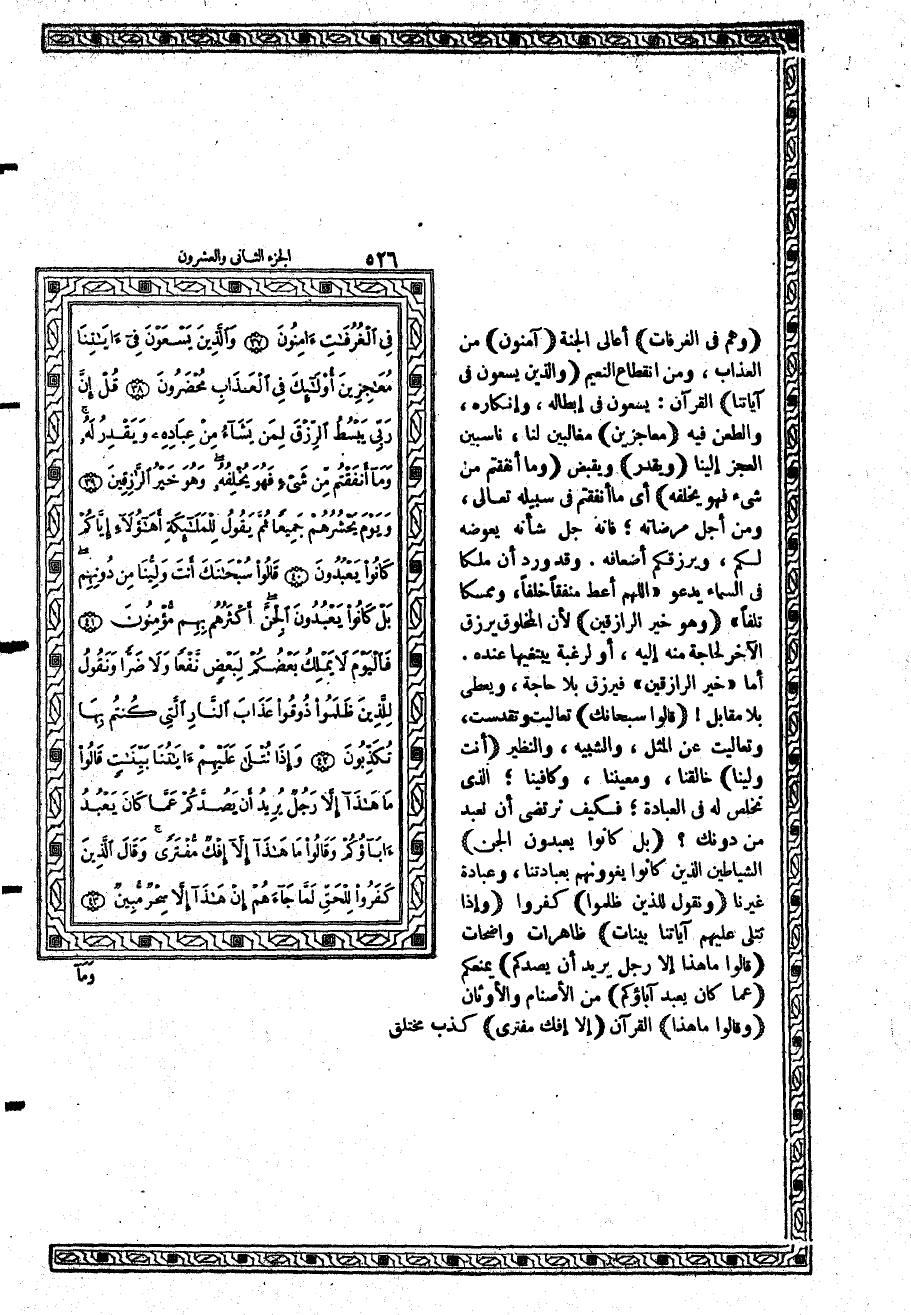 ٥٢٦ الجزء الثانى والعشرون
فِى ٱلْغُرُفَٰتِ ءَامِنُونَ ۝٣٧ وَٱلَّذِينَ يَسْعَوْنَ فِىٓ ءَايَٰتِنَا
مُعَٰجِزِينَ أُوْلَٰٓئِكَ فِى ٱلْعَذَابِ مُحْضَرُونَ ۝٣٨ قُلْ إِنَّ
رَبِّى يَبْسُطُ ٱلرِّزْقَ لِمَن يَشَآءُ مِنْ عِبَادِهِۦ وَيَقْدِرُ لَهُۥ ۚ
وَمَآ أَنفَقْتُم مِّن شَىْءٍ فَهُوَ يُخْلِفُهُۥ ۖ وَهُوَ خَيْرُ ٱلرَّٰزِقِينَ ۝٣٩
وَيَوْمَ يَحْشُرُهُمْ جَمِيعًا ثُمَّ يَقُولُ لِلْمَلَٰٓئِكَةِ أَهَٰٓؤُلَآءِ إِيَّاكُمْ
كَانُواْ يَعْبُدُونَ ۝٤٠ قَالُواْ سُبْحَٰنَكَ أَنتَ وَلِيُّنَا مِن دُونِهِم ۖ
بَلْ كَانُواْ يَعْبُدُونَ ٱلْجِنَّ ۖ أَكْثَرُهُم بِهِم مُّؤْمِنُونَ ۝٤١
فَٱلْيَوْمَ لَا يَمْلِكُ بَعْضُكُمْ لِبَعْضٍ نَّفْعًا وَلَا ضَرًّا وَنَقُولُ
لِلَّذِينَ ظَلَمُواْ ذُوقُواْ عَذَابَ ٱلنَّارِ ٱلَّتِى كُنتُم بِهَا
تُكَذِّبُونَ ۝٤٢ وَإِذَا تُتْلَىٰ عَلَيْهِمْ ءَايَٰتُنَا بَيِّنَٰتٍ قَالُواْ
مَا هَٰذَآ إِلَّا رَجُلٌ يُرِيدُ أَن يَصُدَّكُمْ عَمَّا كَانَ يَعْبُدُ
ءَابَآؤُكُمْ وَقَالُواْ مَا هَٰذَآ إِلَّآ إِفْكٌ مُّفْتَرًى ۚ وَقَالَ ٱلَّذِينَ
كَفَرُواْ لِلْحَقِّ لَمَّا جَآءَهُمْ إِنْ هَٰذَآ إِلَّا سِحْرٌ مُّبِينٌ ۝٤٣
وَمَآ
(وهم فى الغرفات) أعالى الجنة (آمنون) من
العذاب ، ومن انقطاع النعيم (والذين يسعون فى
آياتنا) القرآن : يسعون فى إبطاله ، وإنكاره ،
والطعن فيه (معاجزين) مغالبين لنا ، ناسبين
العجز إلينا (ويقدر) ويقبض (وما أنفقتم من
شىء فهو يخلفه) أى ماأنفقتم فى سبيله تعالى ،
ومن أجل مرضاته ؛ فانه جل شأنه يعوضه
لكم ، ويرزقكم أضعافه . وقد ورد أن ملكا
فى السماء يدعو «اللهم أعط منفقاً خلفاً، وممسكا
تلفاً» (وهو خير الرازقين) لأن المخلوق يرزق
الآخر لحاجة منه إليه ، أو لرغبة يبتغيها عنده .
أما «خير الرازقين» فيرزق بلا حاجة ، ويعطى
بلا مقابل ! (قالوا سبحانك) تعاليت وتقدست،
وتعاليت عن المثل ، والشبيه ، والنظير (أنت
ولينا) خالقنا ، ومعيننا ، وكافينا ؛ الذى
نخلص له فى العبادة ؛ فكيف ترتضى أن نعبد
من دونك ؟ (بل كانوا يعبدون الجن)
الشياطين الذين كانوا يغوونهم بعبادتنا ، وعبادة
غيرنا (ونقول للذين ظلموا) كفروا (وإذا
تتلى عليهم آياتنا بينات) ظاهرات واضحات
(قالوا ماهذا إلا رجل يريد أن يصدكم) يمنعكم
(عما كان يعبد آباؤكم) من الأصنام والأوثان
(وقالوا ماهذا) القرآن (إلا إفك مفترى) كذب مختلق